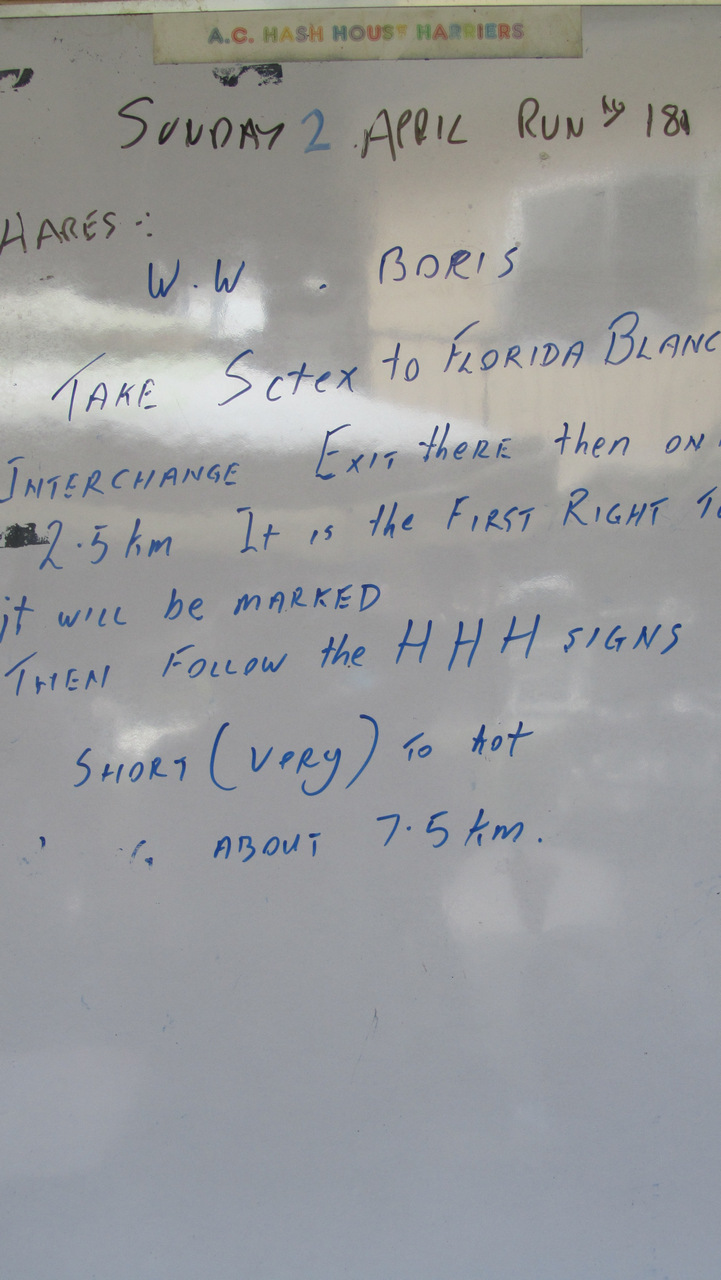 A.C. HASH HOUSE HARRIERS
SUNDAY 2 APRIL RUN No
HARES :
W.W . BORIS
TAKE Sctex to FLORIDA BLANC
INTERCHANGE EXIT there then ON
2.5 km It is the FIRST RIGHT
it WILL be MARKED
THEN FOLLOW the H H H SIGNS
SHORT (very) TO
ABOUT 7.5 km.